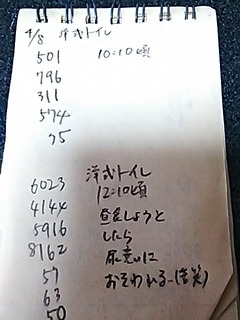 4/8 洋式トイレ
501 10:10頃
796
311
574
75
洋式トイレ
6023 12:10頃
4144 昼食しようと
5916 したら
8162 尿意に
57 おそわれる-(苦笑)
63
50